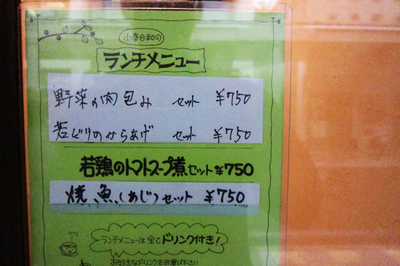 小春日和の
ランチメニュー
野菜の肉包み セット ¥750
若どりのからあげ セット ¥750
若鶏のトマトスープ煮セット ¥750
焼魚(あじ)セット ¥750
ランチメニューは全てドリンク付き!
お好きなドリンクをお選び下さい